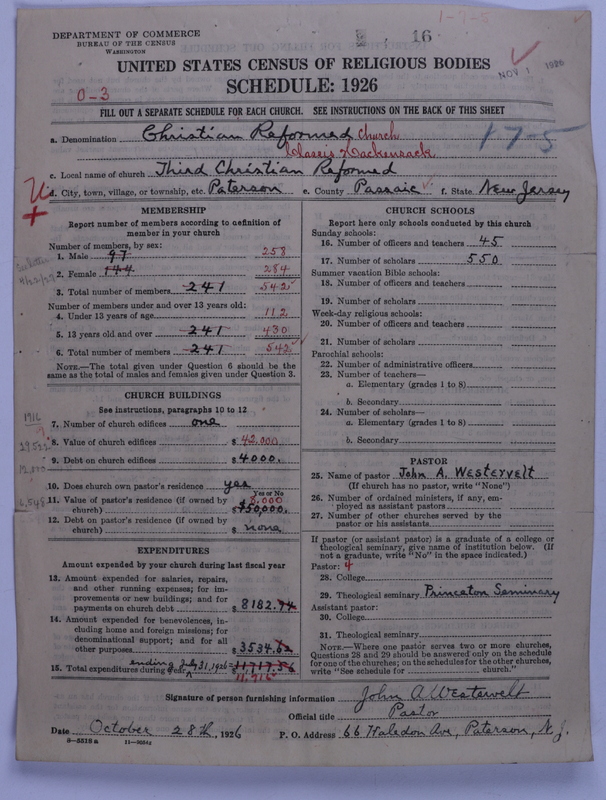 1-7-5
DEPARTMENT OF COMMERCE
BUREAU OF THE CENSUS
WASHINGTON
16
UNITED STATES CENSUS OF RELIGIOUS BODIES
NOV 1 1926
SCHEDULE: 1926
0-3
FILL OUT A SEPARATE SCHEDULE FOR EACH CHURCH. SEE INSTRUCTIONS ON THE BACK OF THIS SHEET
a. Denomination Christian Reformed Church
17-5
Classis Hackensack
c. Local name of church Third Christian Reformed
d. City, town, village, or township, etc. Paterson e. County Passaic f. State New Jersey
MEMBERSHIP
Report number of members according to definition of
member in your church
Number of members, by sex:
1. Male 97 258
2. Female 144 284
3. Total number of members 241 542
Number of members under and over 13 years old:
4. Under 13 years of age 112
5. 13 years old and over 241 430
6. Total number of members 241 542
NOTE.—The total given under Question 6 should be the
same as the total of males and females given under Question 3.
CHURCH BUILDINGS
See instructions, paragraphs 10 to 12
1916
7. Number of church edifices one
8. Value of church edifices $ 42,000
9. Debt on church edifices $ 4000.
10. Does church own pastor's residence yes
Yes or No
11. Value of pastor's residence (if owned by
church) $ 8,000
12. Debt on pastor's residence (if owned by
church) $ none
EXPENDITURES
Amount expended by your church during last fiscal year
13. Amount expended for salaries, repairs,
and other running expenses; for im-
provements or new buildings; and for
payments on church debt $ 8182.74
14. Amount expended for benevolences, in-
cluding home and foreign missions; for
denominational support; and for all
other purposes $ 3534.62
15. Total expenditures during year ending July 31, 1926 = $ 11,717.36
11,716
CHURCH SCHOOLS
Report here only schools conducted by this church
Sunday schools:
16. Number of officers and teachers 45
17. Number of scholars 550
Summer vacation Bible schools:
18. Number of officers and teachers
19. Number of scholars
Week-day religious schools:
20. Number of officers and teachers
21. Number of scholars
Parochial schools:
22. Number of administrative officers
23. Number of teachers—
a. Elementary (grades 1 to 8)
b. Secondary
24. Number of scholars—
a. Elementary (grades 1 to 8)
b. Secondary
PASTOR
25. Name of pastor John A. Westervelt
(If church has no pastor, write "None")
26. Number of ordained ministers, if any, em-
ployed as assistant pastors
27. Number of other churches served by the
pastor or his assistants
If pastor (or assistant pastor) is a graduate of a college or
theological seminary, give name of institution below. (If
not a graduate, write "No" in the space indicated.)
Pastor: 4
28. College
29. Theological seminary Princeton Seminary
Assistant pastor:
30. College
31. Theological seminary
NOTE.—Where one pastor serves two or more churches,
Questions 28 and 29 should be answered only on the schedule
for one of the churches; on the schedules for the other churches,
write "See schedule for church."
Signature of person furnishing information John A Westervelt
Official title Pastor
Date October 28th, 1926 P. O. Address 66 Haledon Ave, Paterson, N.J.